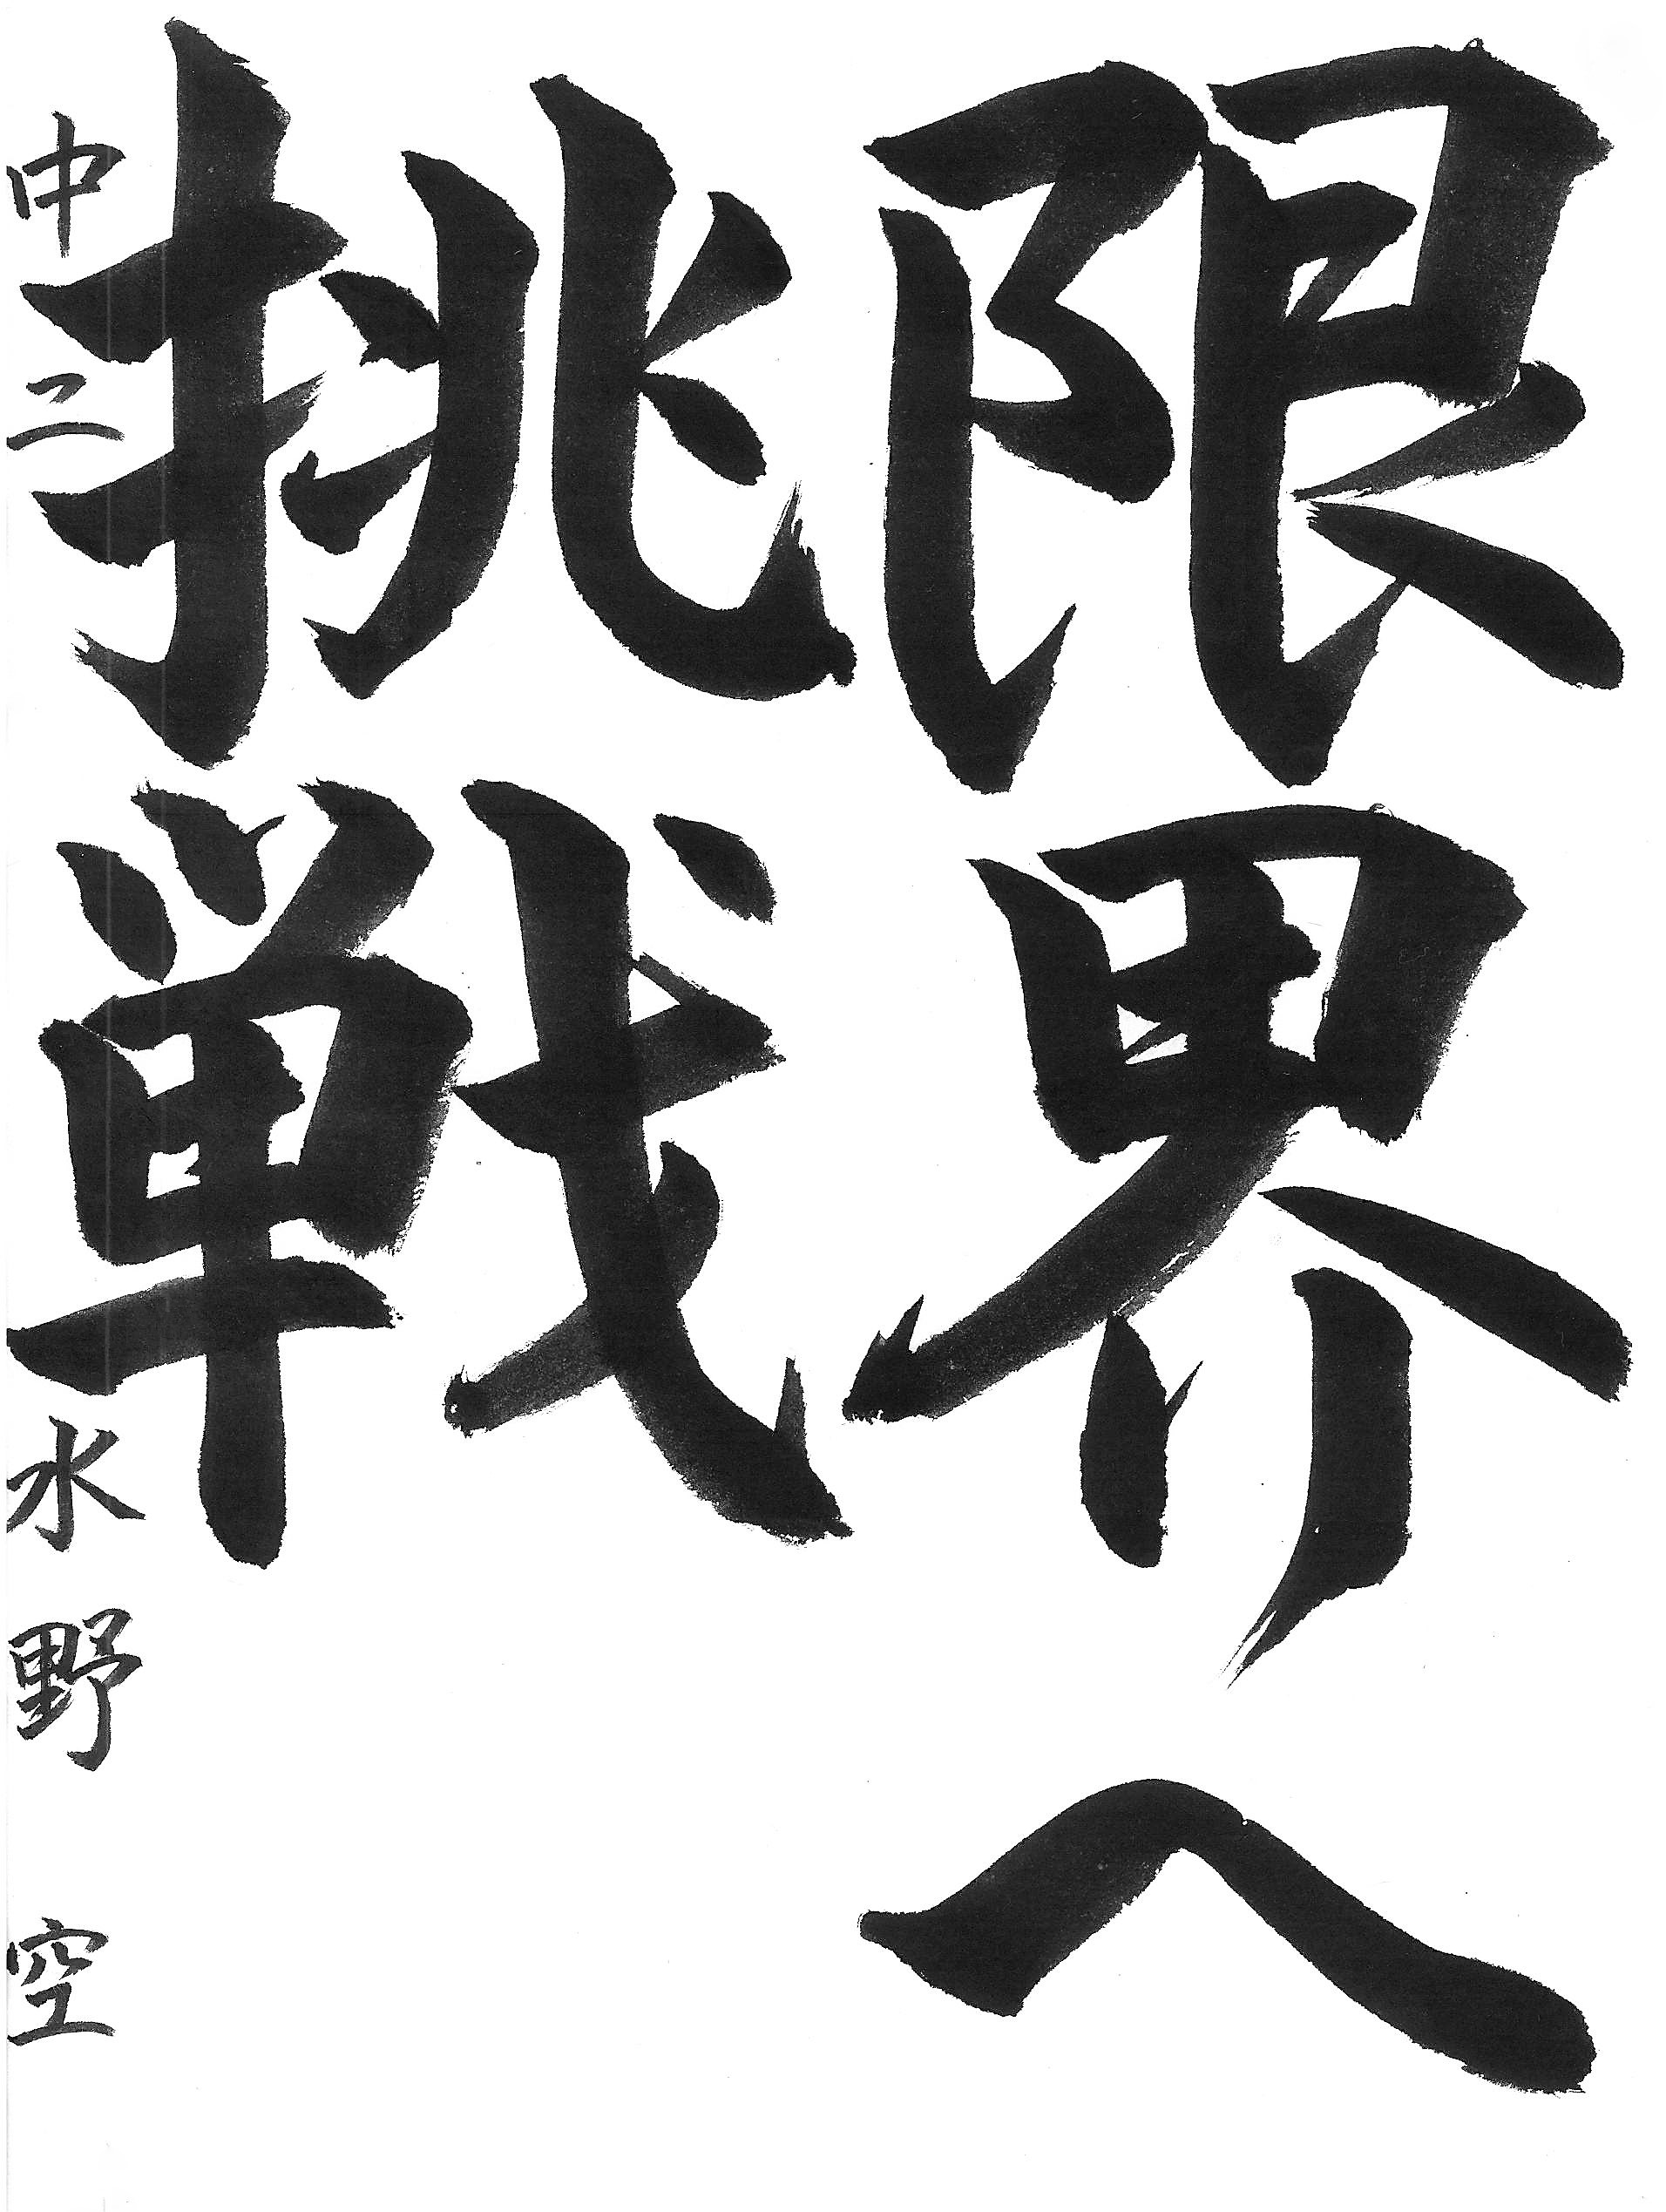 限界へ
挑戦
中二 水野 空